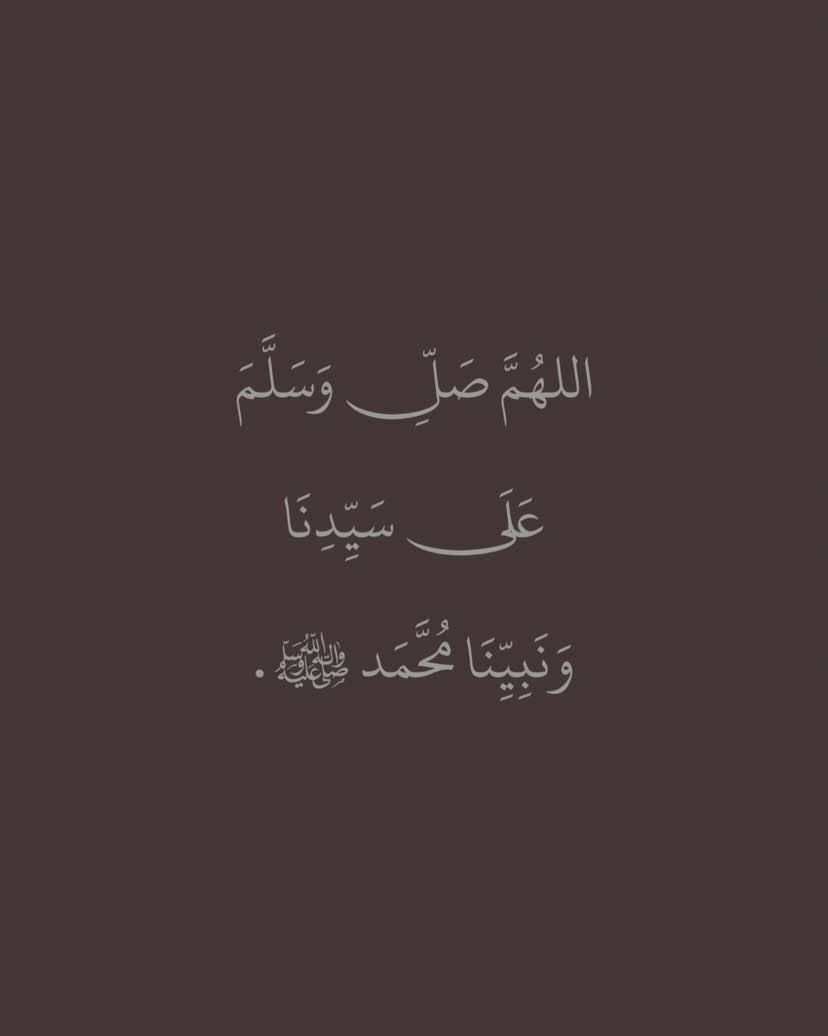 اللهُمَّ صَلِّ وَسَلَّمَ
عَلَى سَيِّدِنَا
وَنَبِيِّنَا مُحَّمَد ﷺ .